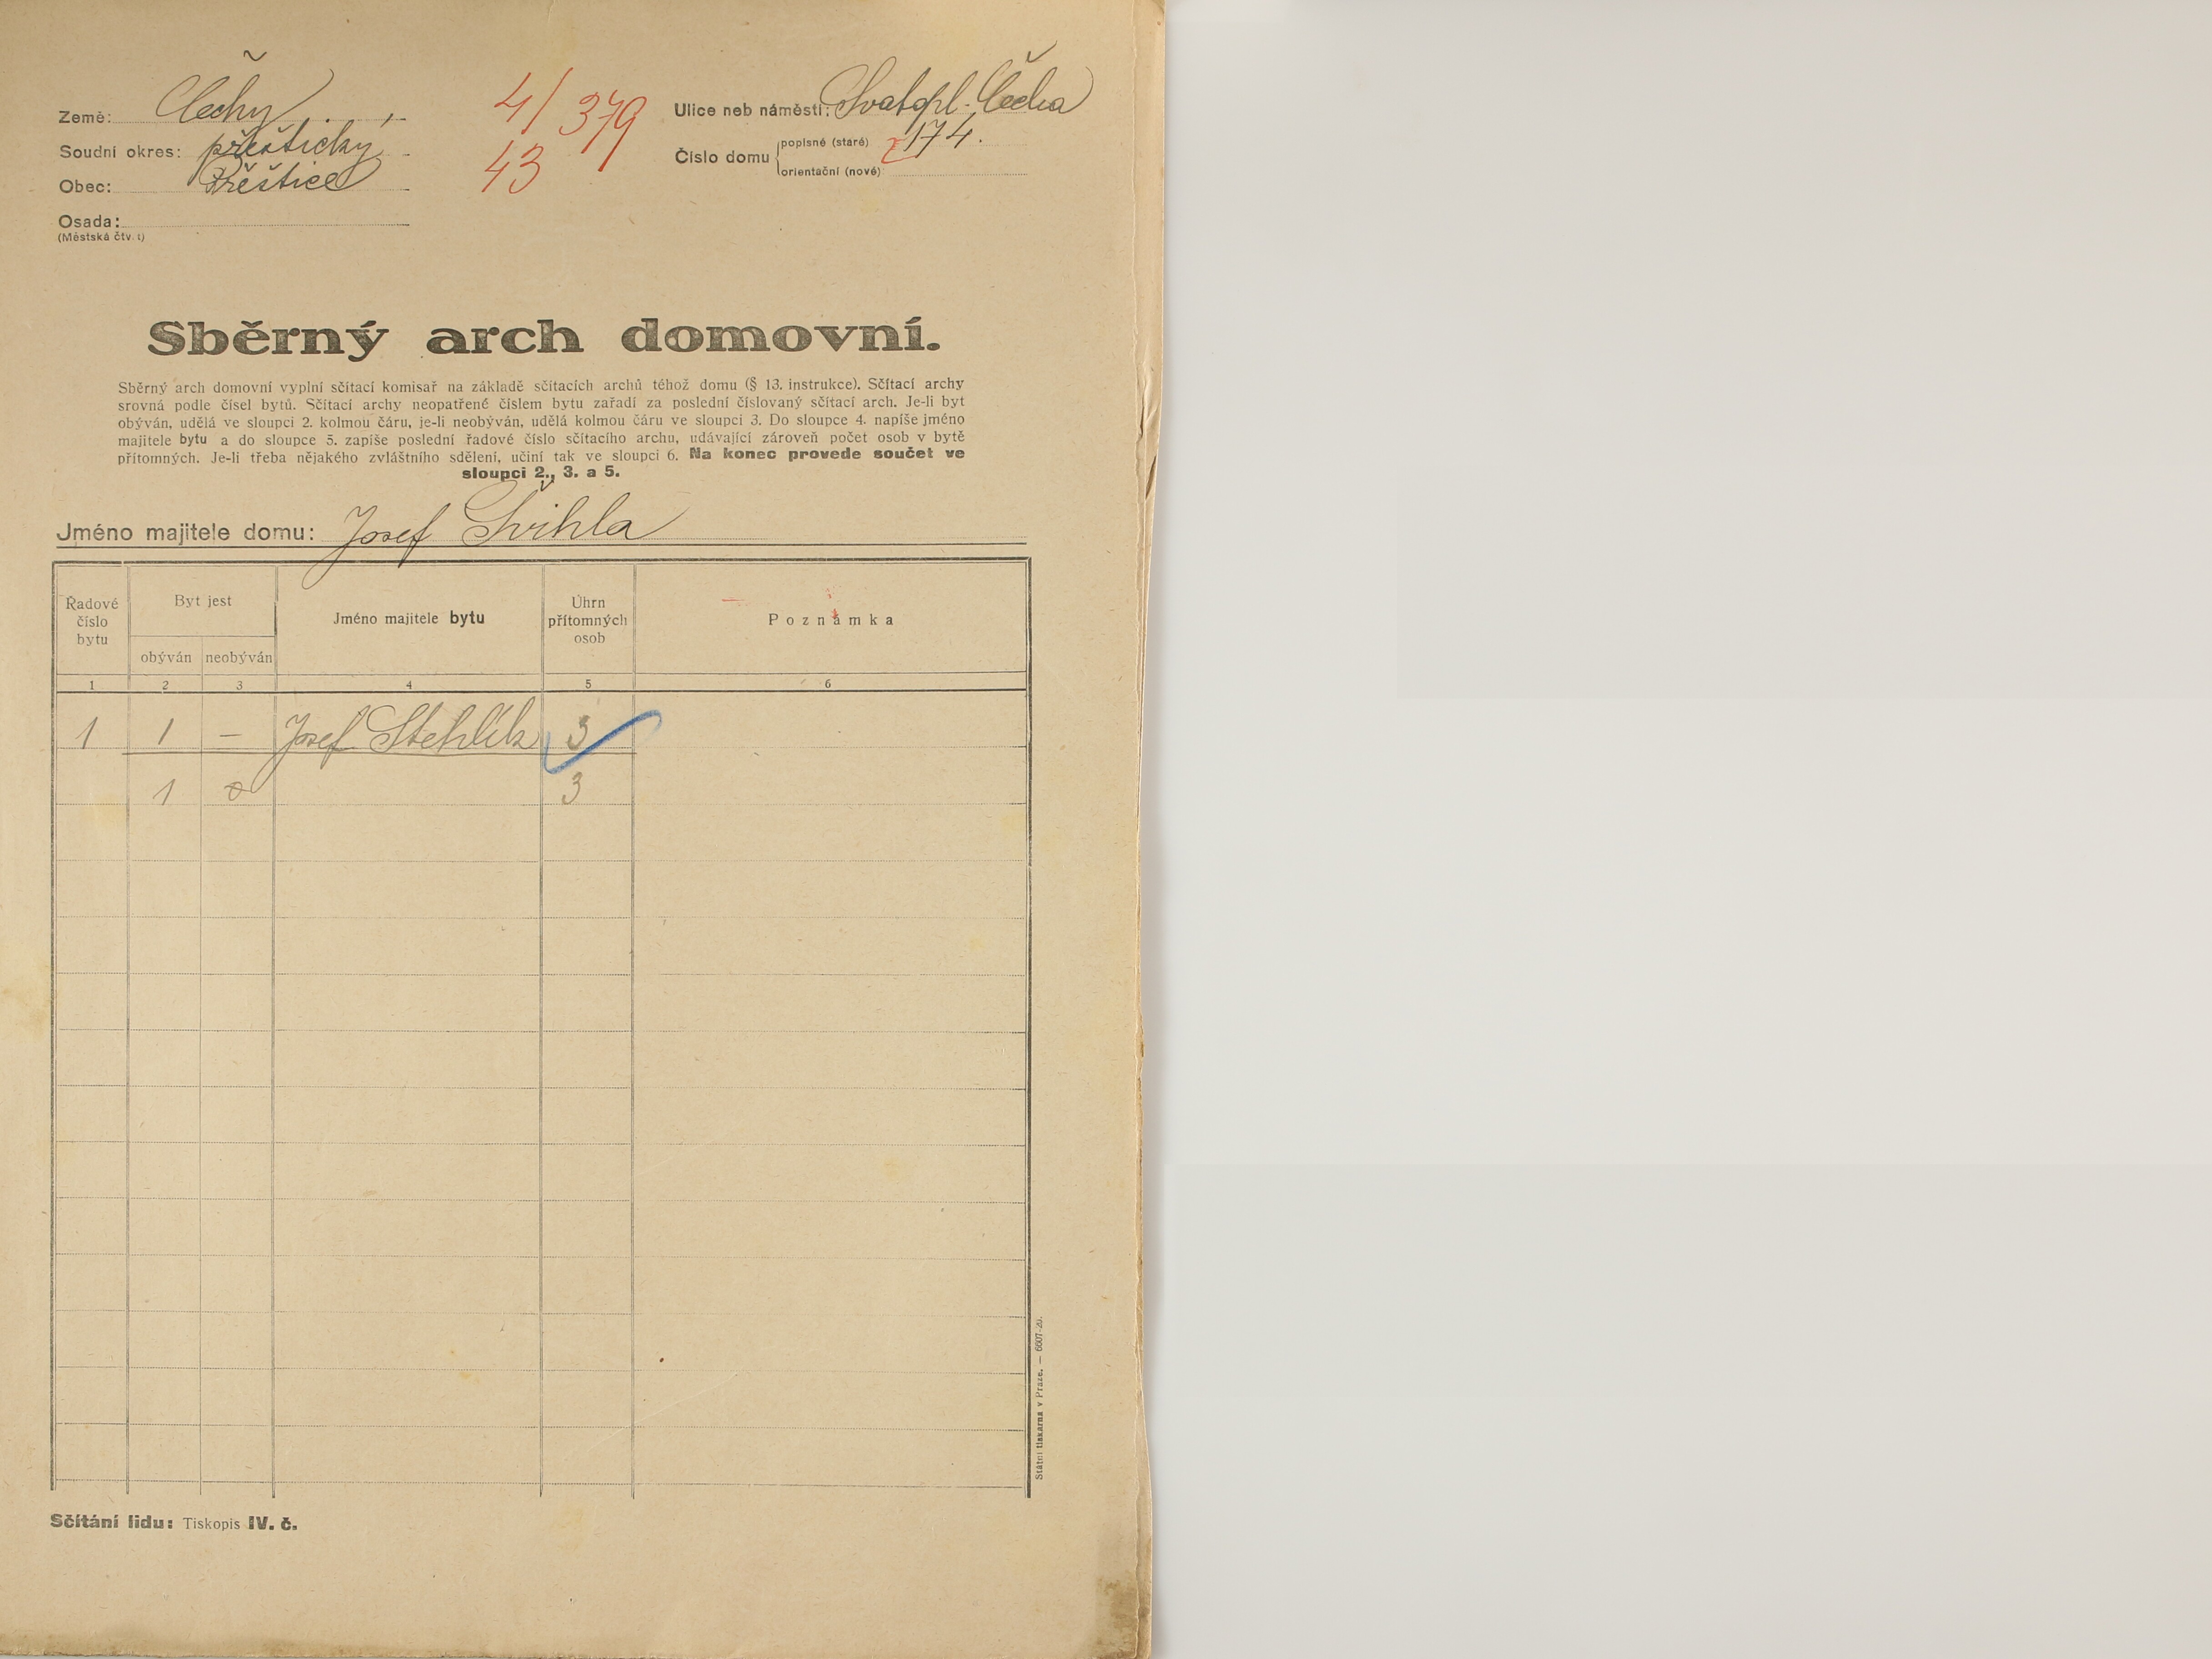 Země: Čechy
Soudní okres: přeštický
Obec: Přeštice
Osada:
(Městská čtvrt)
4/379
43
Ulice neb náměstí: Svatopl. Čecha
Číslo domu
popisné (staré) 174.
orientační (nové)
Sběrný arch domovní.
Sběrný arch domovní vyplní sčítací komisař na základě sčítacích archů téhož domu (§ 13. instrukce). Sčítací archy
srovná podle čísel bytů. Sčítací archy neopatřené číslem bytu zařadí za poslední číslovaný sčítací arch. Je-li byt
obýván, udělá ve sloupci 2. kolmou čáru, je-li neobýván, udělá kolmou čáru ve sloupci 3. Do sloupce 4. napíše jméno
majitele bytu a do sloupce 5. zapíše poslední řadové číslo sčítacího archu, udávající zároveň počet osob v bytě
přítomných. Je-li třeba nějakého zvláštního sdělení, učiní tak ve sloupci 6. Na konec provede součet ve
sloupci 2., 3. a 5.
Jméno majitele domu: Josef Švihla
Řadové
číslo
bytu
Byt jest
obýván
neobýván
Jméno majitele bytu
Úhrn
přítomných
osob
Poznámka
1 2 3 4 5 6
1 1 — Josef Stehlík 3
1 0 3
Státní tiskárna v Praze. — 6607-20.
Sčítání lidu: Tiskopis IV. č.